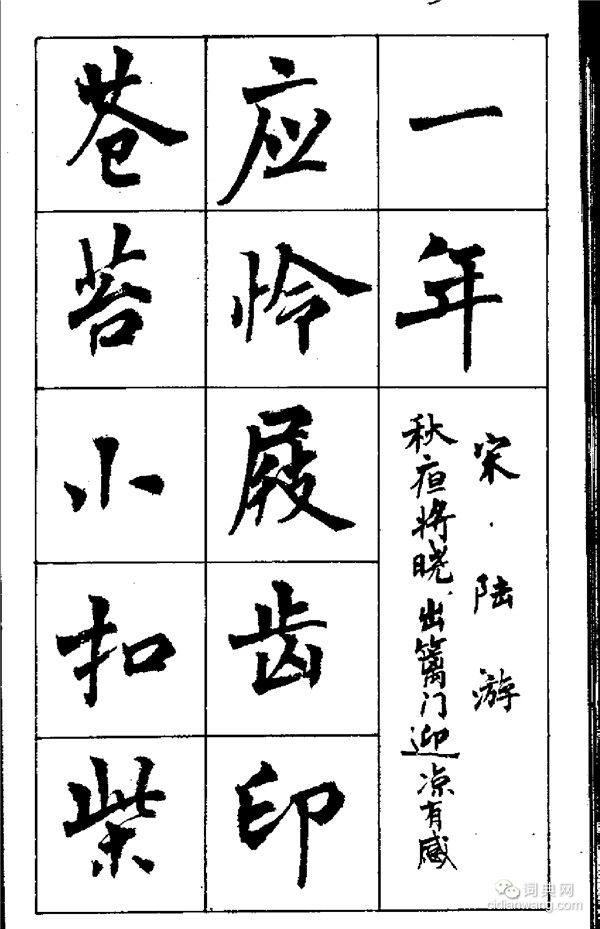 一年
宋·陆游
秋疸将晓出篱门迎凉有感
应怜屐齿印
苍苔小扣柴
词典网
cidianwang.com